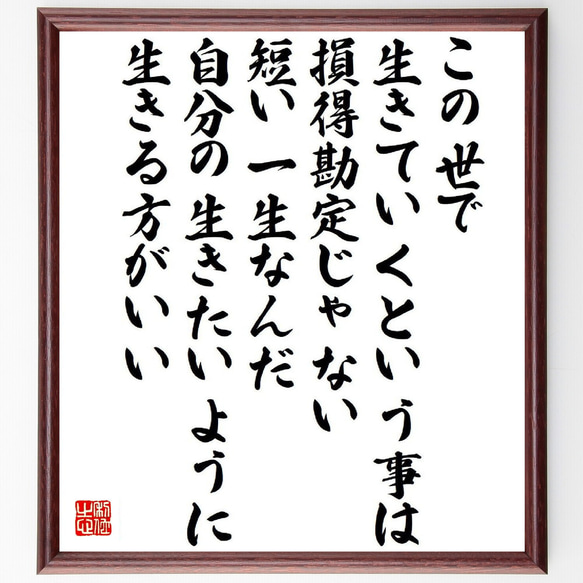 この世で
生きていくという事は
損得勘定じゃない
短い一生なんだ
自分の生きたいように
生きる方がいい